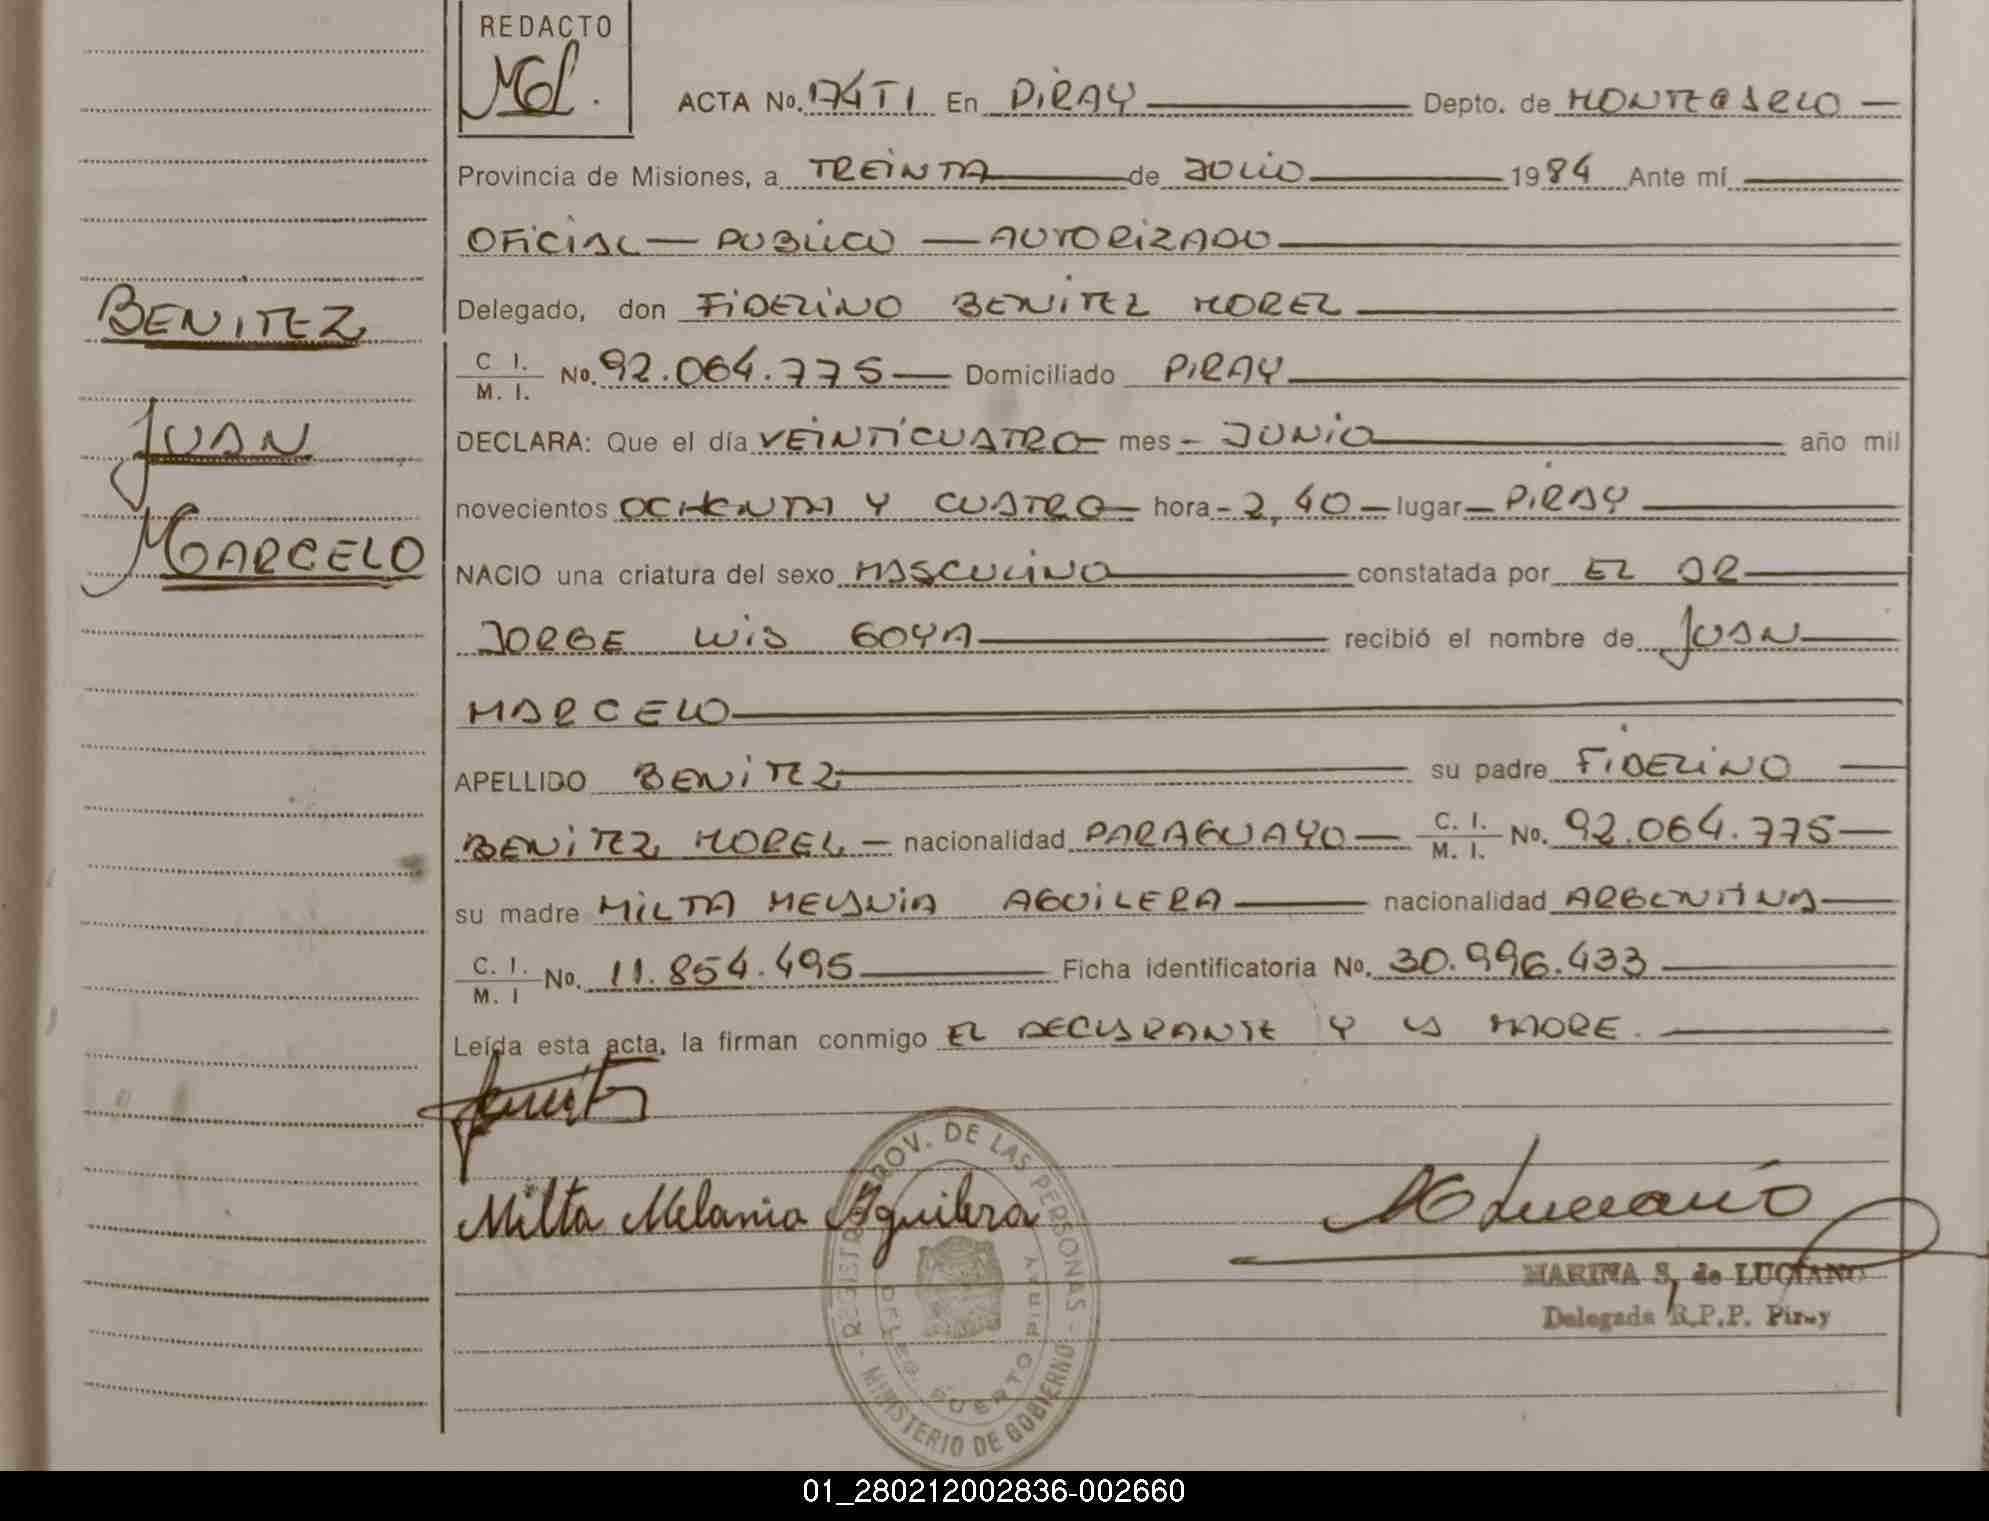 REDACTO
ACTA No. 174 T I En PIRAY Depto. de MONTECARLO
Provincia de Misiones, a TREINTA de JULIO 1984 Ante mí
OFICIAL — PUBLICO — AUTORIZADO
Delegado, don FIDELINO BENITEZ MOREL
C. I. / M. I. No. 92.064.775 — Domiciliado PIRAY
BENITEZ
JUAN
MARCELO
DECLARA: Que el día VEINTICUATRO — mes - JUNIO año mil
novecientos OCHENTA Y CUATRO — hora - 2,40 — lugar — PIRAY
NACIO una criatura del sexo MASCULINO constatada por EL DR
JORGE LUIS GOYA recibió el nombre de JUAN
MARCELO
APELLIDO BENITEZ su padre FIDELINO
BENITEZ MOREL — nacionalidad PARAGUAYO — C. I. / M. I. No. 92.064.775 —
su madre MILTA MELANIA AGUILERA nacionalidad ARGENTINA
C. I. / M. I No. 11.854.495 Ficha identificatoria No. 30.996.433
Leída esta acta, la firman conmigo EL DECLARANTE Y LA MADRE.
Milta Melania Aguilera
MARINA S. de LUCIANO
Delegada R.P.P. Piray
REGISTRO PROV. DE LAS PERSONAS - MINISTERIO DE GOBIERNO -
DELEG. PUERTO PIRAY
01_280212002836-002660